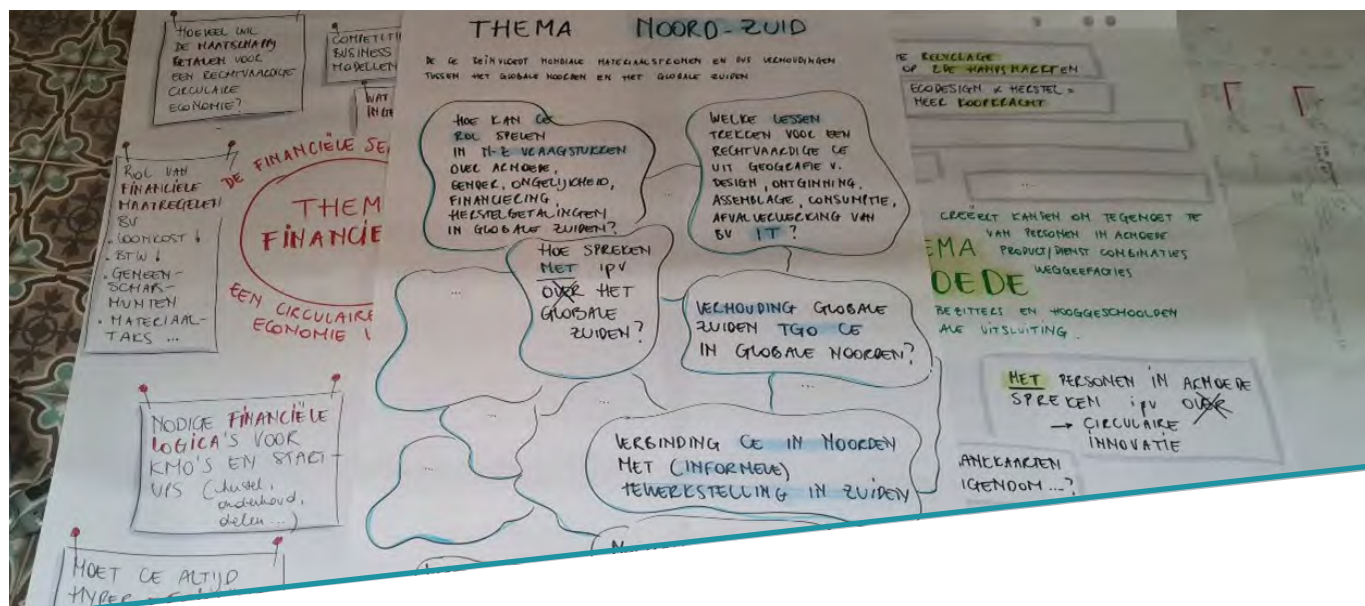 HOEVEEL WIL
DE MAATSCHAPPIJ
BETALEN VOOR
EEN RECHTVAARDIGE
CIRCULAIRE
ECONOMIE?
BUSINESS
MODELLEN
WAT
ROL VAN
FINANCIËLE
MAATREGELEN
BV
. LOONKOST ↓
. BTW ↓
. GEMEEN-
SCHAPS-
MUNTEN
. MATERIAAL-
TAKS ...
DE FINANCIËLE
THEM
FINANCIE
EEN CIRCULAIRE
ECONOMIE
NODIGE FINANCIËLE
LOGICA'S VOOR
KMO'S EN START-
UPS (herstel,
onderhoud,
delen ...)
MOET CE ALTIJD
HYPER
THEMA NOORD-ZUID
DE CE BEÏNVLOEDT MONDIALE MATERIAALSTROMEN EN DUS VERHOUDINGEN
TUSSEN HET GLOBALE NOORDEN EN HET GLOBALE ZUIDEN
HOE KAN CE
ROL SPELEN
IN N-Z VRAAGSTUKKEN
OVER ARMOEDE,
GENDER, ONGELIJKHEID,
FINANCIERING,
HERSTELBETALINGEN
IN GLOBALE ZUIDEN?
WELKE LESSEN
TREKKEN VOOR EEN
RECHTVAARDIGE CE
UIT GEOGRAFIE V.
DESIGN, ONTGINNING,
ASSEMBLAGE, CONSUMPTIE,
AFVALVERWERKING VAN
BV IT?
HOE SPREKEN
MET IPV
OVER HET
GLOBALE
ZUIDEN?
...
VERHOUDING GLOBALE
ZUIDEN TGO CE
IN GLOBALE NOORDEN?
...
VERBINDING CE IN NOORDEN
MET (INFORMELE)
TEWERKSTELLING IN ZUIDEN
...
RECYCLAGE
OP 2DE HANDSMARKTEN
ECODESIGN & HERSTEL =
MEER KOOPKRACHT
...
CREËERT KANSEN OM TEGEMOET TE
VAN PERSONEN IN ARMOEDE
EMA PRODUCT/DIENST COMBINATIES
OEDE WEGGEEFACTIES
BEZITTERS EN HOOGGESCHOOLDEN
ALE UITSLUITING.
MET PERSONEN IN ARMOEDE
SPREKEN ipv OVER
→ CIRCULAIRE
INNOVATIE
ANKKAARTEN
IGENDOM ...?